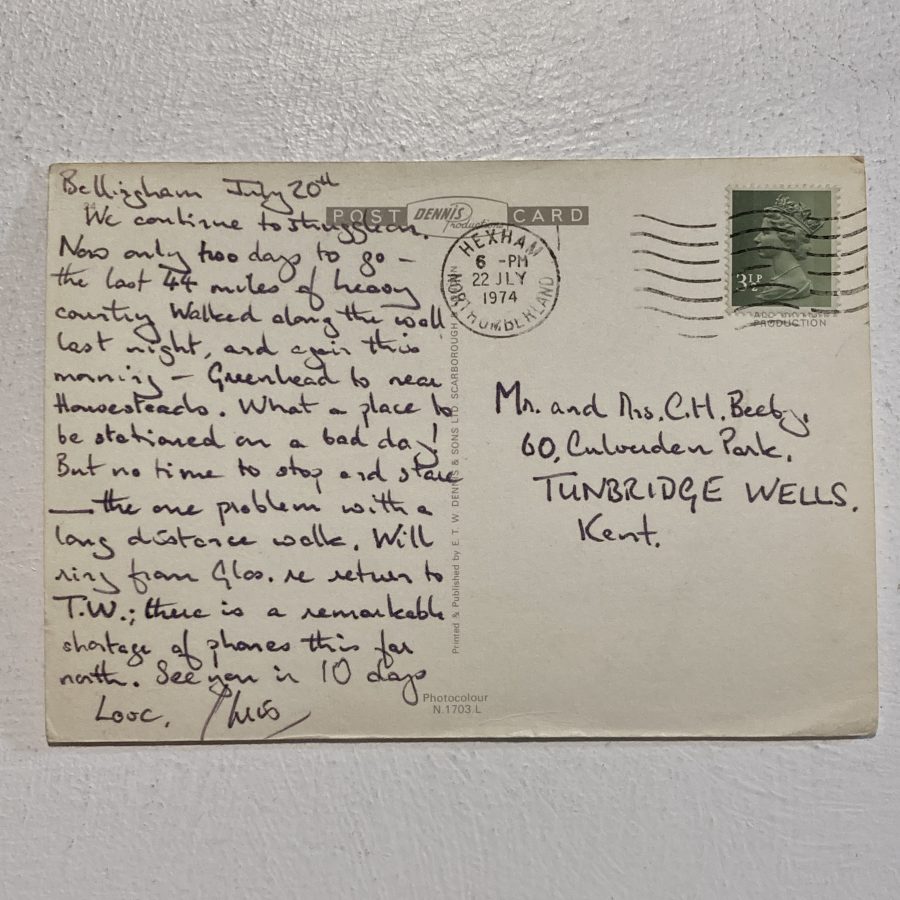 Bellingham July 20th
We continue to struggle on.
Now only two days to go –
the last 44 miles of heavy
country. Walked along the wall
last night, and again this
morning – Greenhead to near
Housesteads. What a place to
be stationed on a bad day!
But no time to stop and stare
— the one problem with a
long distance walk. Will
ring from Glos. re return to
T.W.; there is a remarkable
shortage of phones this far
north. See you in 10 days
Love, Chris
POST DENNIS Productions CARD
HEXHAM
6 -PM
22 JLY
1974
NORTHUMBERLAND
3½P
PRODUCTION
Printed & Published by E. T. W. DENNIS & SONS LTD. SCARBOROUGH
Mr. and Mrs. C.H. Beeby,
60, Culverden Park,
TUNBRIDGE WELLS.
Kent.
Photocolour
N.1703 L